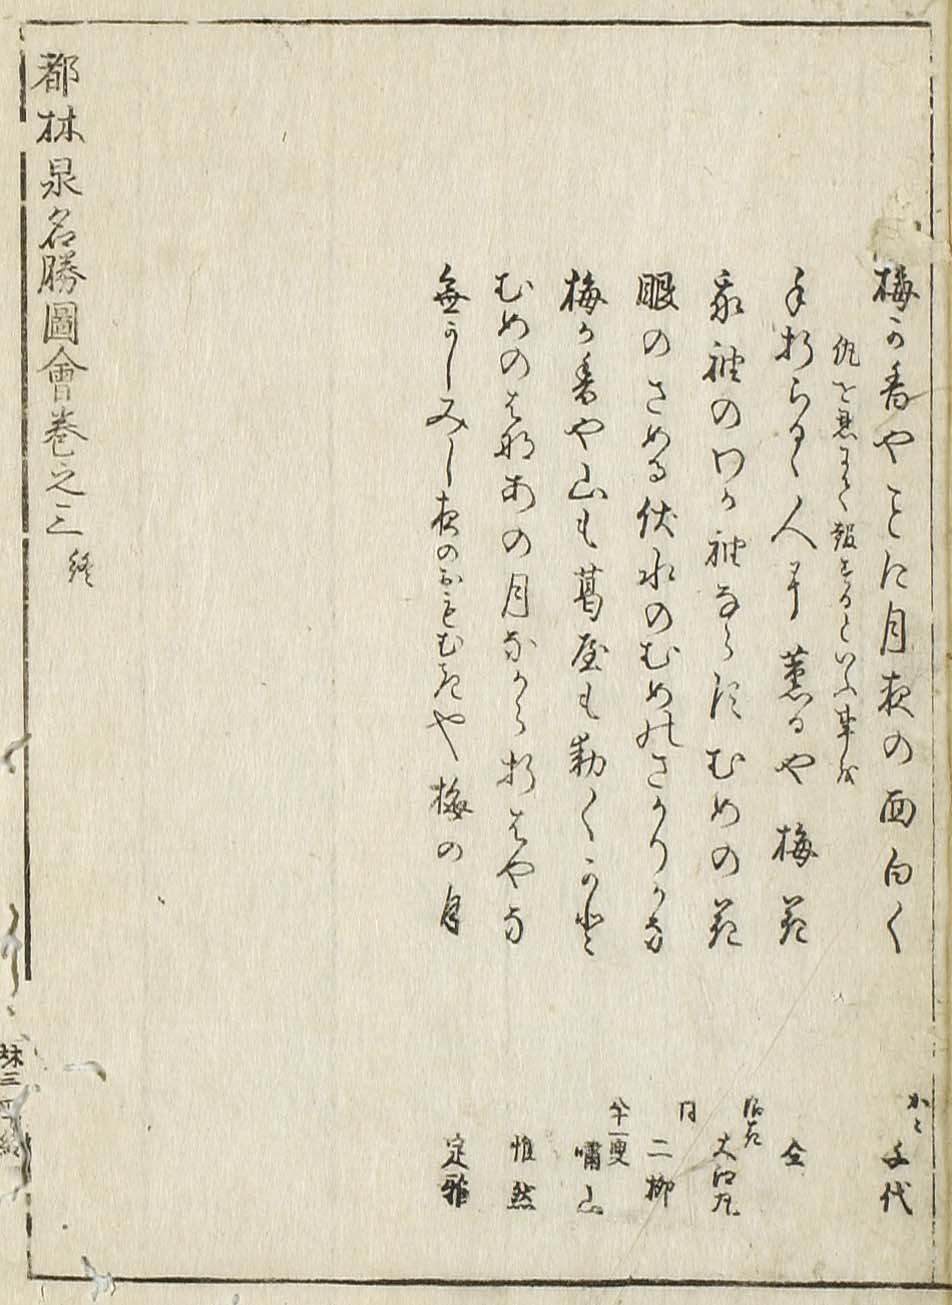 梅か香やことに月夜の面白く
かゝ 千代
仇を恩にて報するといふ事を
手折らるゝ人に薫るや梅花
仝
我袖のわか袖ならすむめの花
大江丸
眼のさめる伏水のむめのさかりかな
同 二柳
梅か香や山も葛屋も動くかと
八十一叟 嘯山
むめのはなあの月なから折はやな
惟然
無かしみし夜のおもむきや梅の月
定雅
都林泉名勝圖會巻之三終
林三